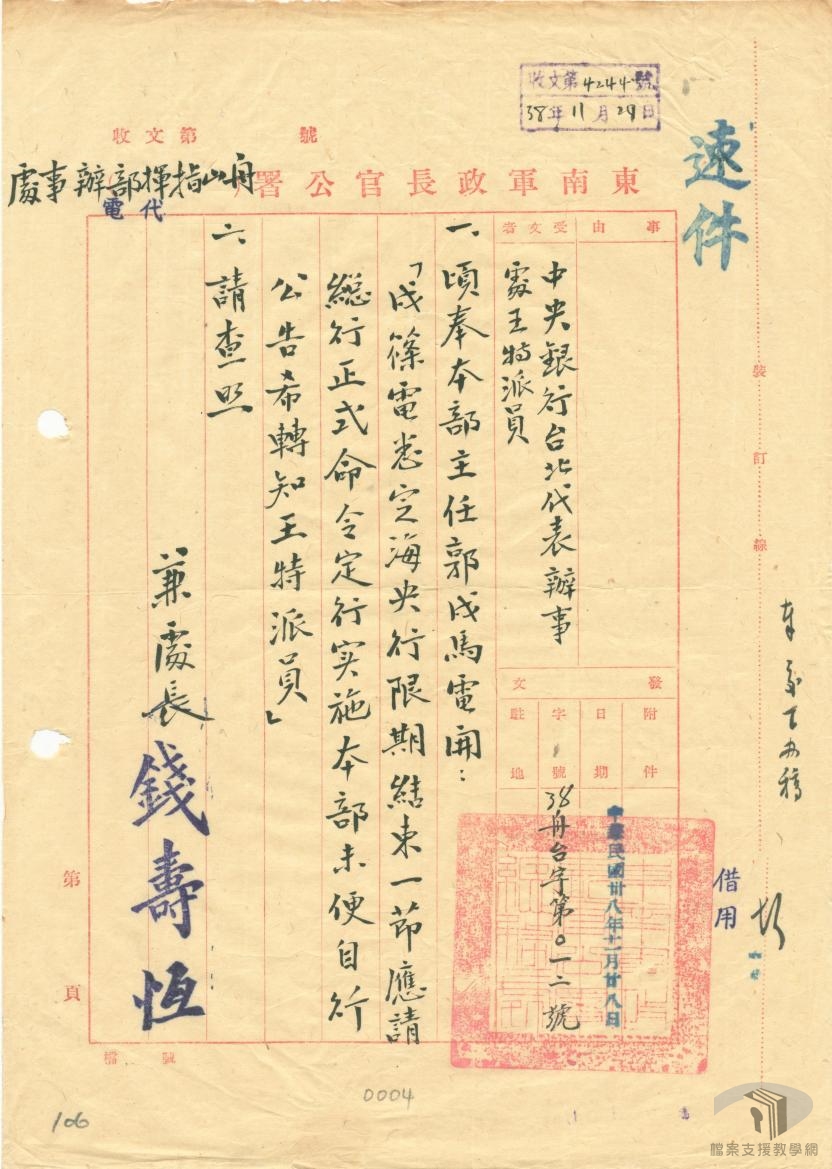 收文第4244號
38年11月29日
速件
收文第　　號
東南軍政長官公署
舟山指揮部辦事處
代電
事由
受文者
中央銀行台北代表辦事
處王特派員
發文
附件
日期
字號
駐地
中華民國卅八年十一月廿八日
38舟台字第〇一二號
一、頃奉本部主任郭戌馬電開：
「戌篠電悉定海央行限期結束一節應請
總行正式命令定行实施本部未便自行
公告希轉知王特派員」
二、請查照
兼處長錢壽恆
裝訂線
借用
第　頁
檔號
0004
106
檔案支援教學網